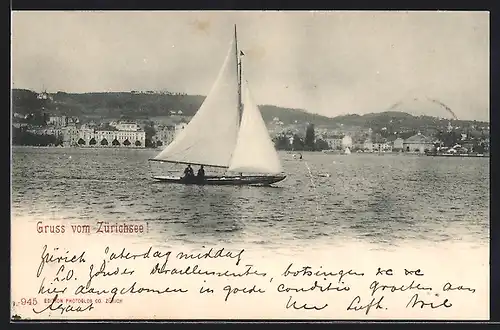 Gruss vom Zürichsee!
Zürich Zaterdag middag
L.O. Zonder Derailsementen, botsingen &c &c
hier aangekomen in goede conditie groeten aan
945 EDITION PHOTOGLOB CO. ZÜRICH